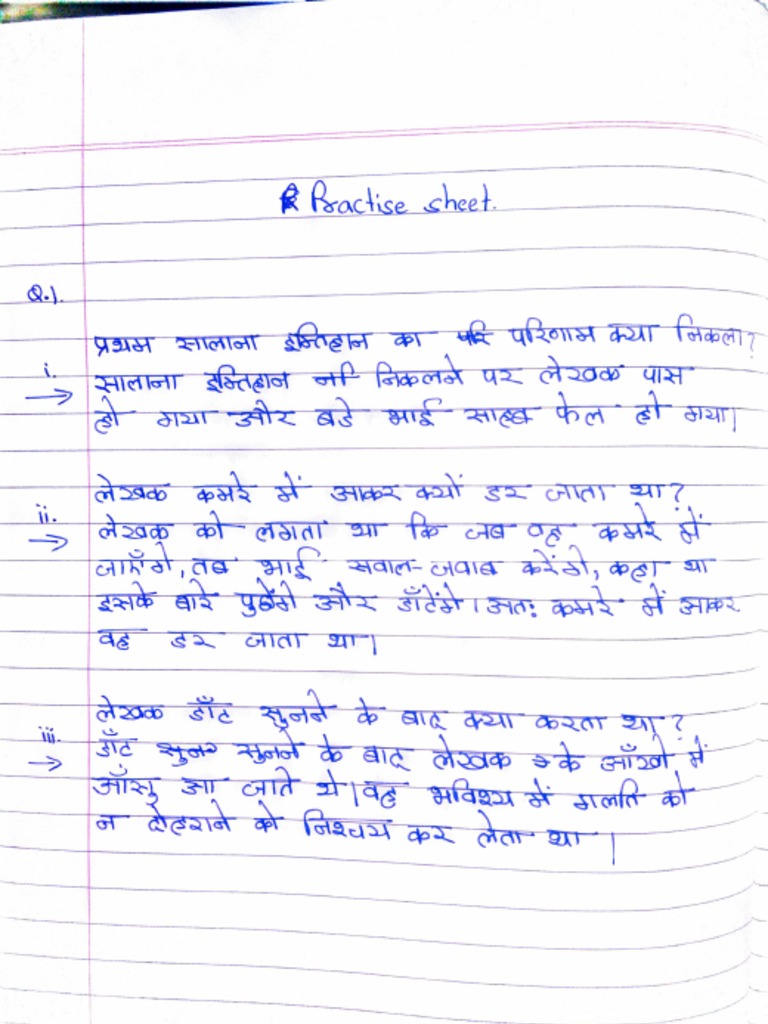 Practise sheet.
Q.1.
प्रथम सालाना इम्तिहान का परिणाम क्या निकला?
i.
सालाना इम्तिहान निकलने पर लेखक पास
→
हो गया और बडे भाई साहब फेल हो गया।
लेखक कमरे में आकर क्यों डर जाता था?
ii.
लेखक को लगता था कि जब वह कमरे में
→
जाएँगे, तब भाई सवाल-जवाब करेंगे, कहा था
इसके बारे पुछेंगे और डाँटेंगे। अतः कमरे में आकर
वह डर जाता था।
लेखक डाँट सुनने के बाद क्या करता था?
iii.
डाँट सुनने के बाद लेखक के आँखो में
→
आँसु आ जाते थे। वह भविश्य में गलति को
न दोहराने को निश्चय कर लेता था।